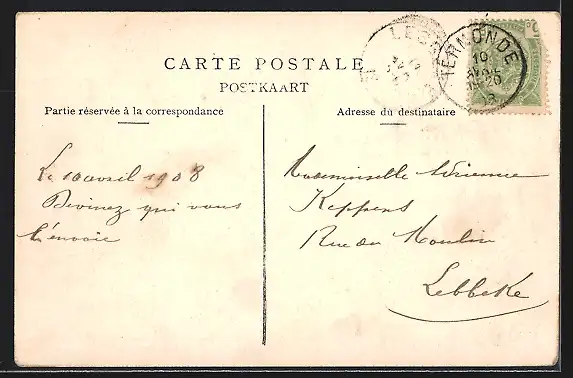 CARTE POSTALE
POSTKAART
Partie réservée à la correspondance
Adresse du destinataire
TERMONDE
10
Le 10 avril 1908
Devinez qui vous
l'envoie
Mademoiselle Adrienne
Keppens
Rue du Moulin
Lebbeke